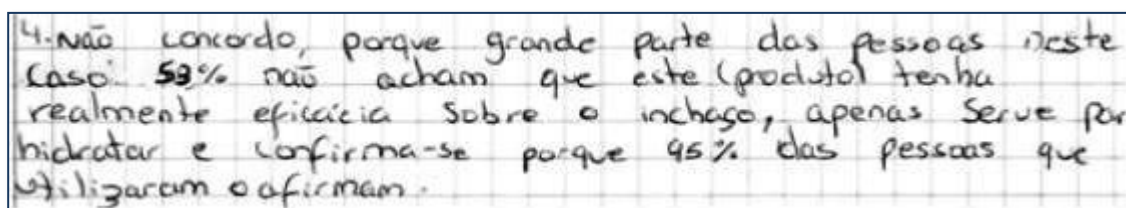 4. Não concordo, porque grande parte das pessoas neste
caso 53% não acham que este (produto) tenha
realmente eficácia sobre o inchaço, apenas serve par
hidratar e confirma-se porque 95% das pessoas que
utilizaram o afirmam.